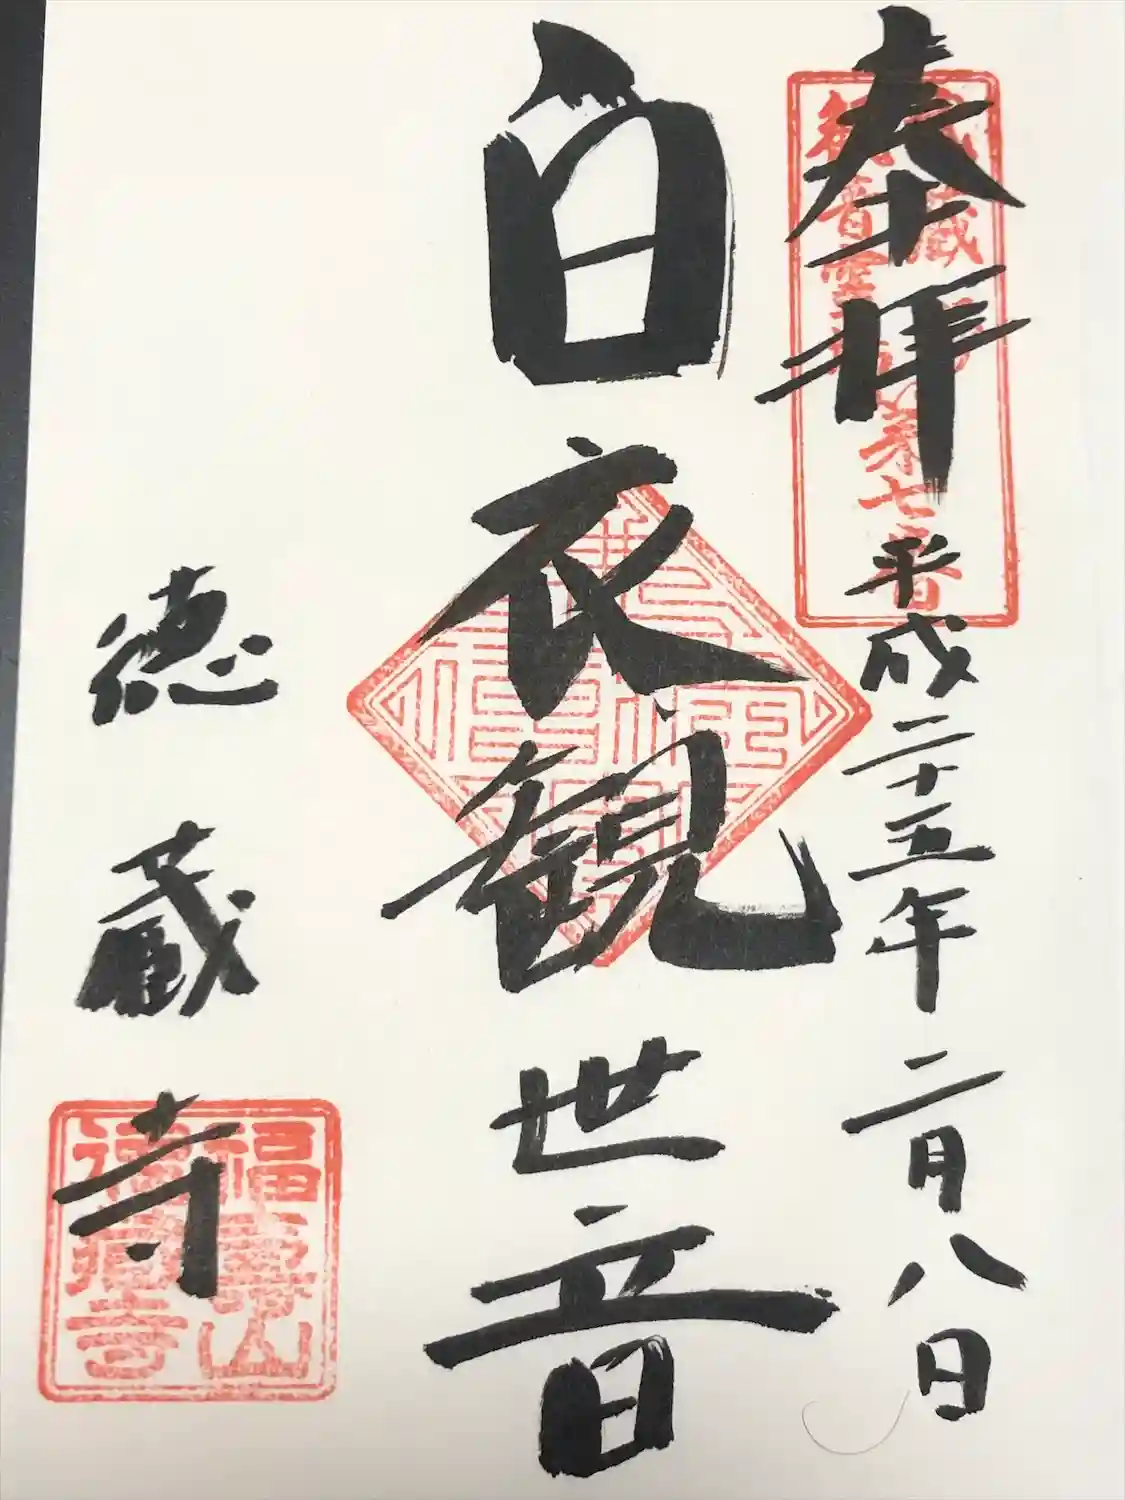 奉拝
平成二十五年二月八日
第七番
白衣観世音
徳蔵寺
福寿山
徳蔵寺